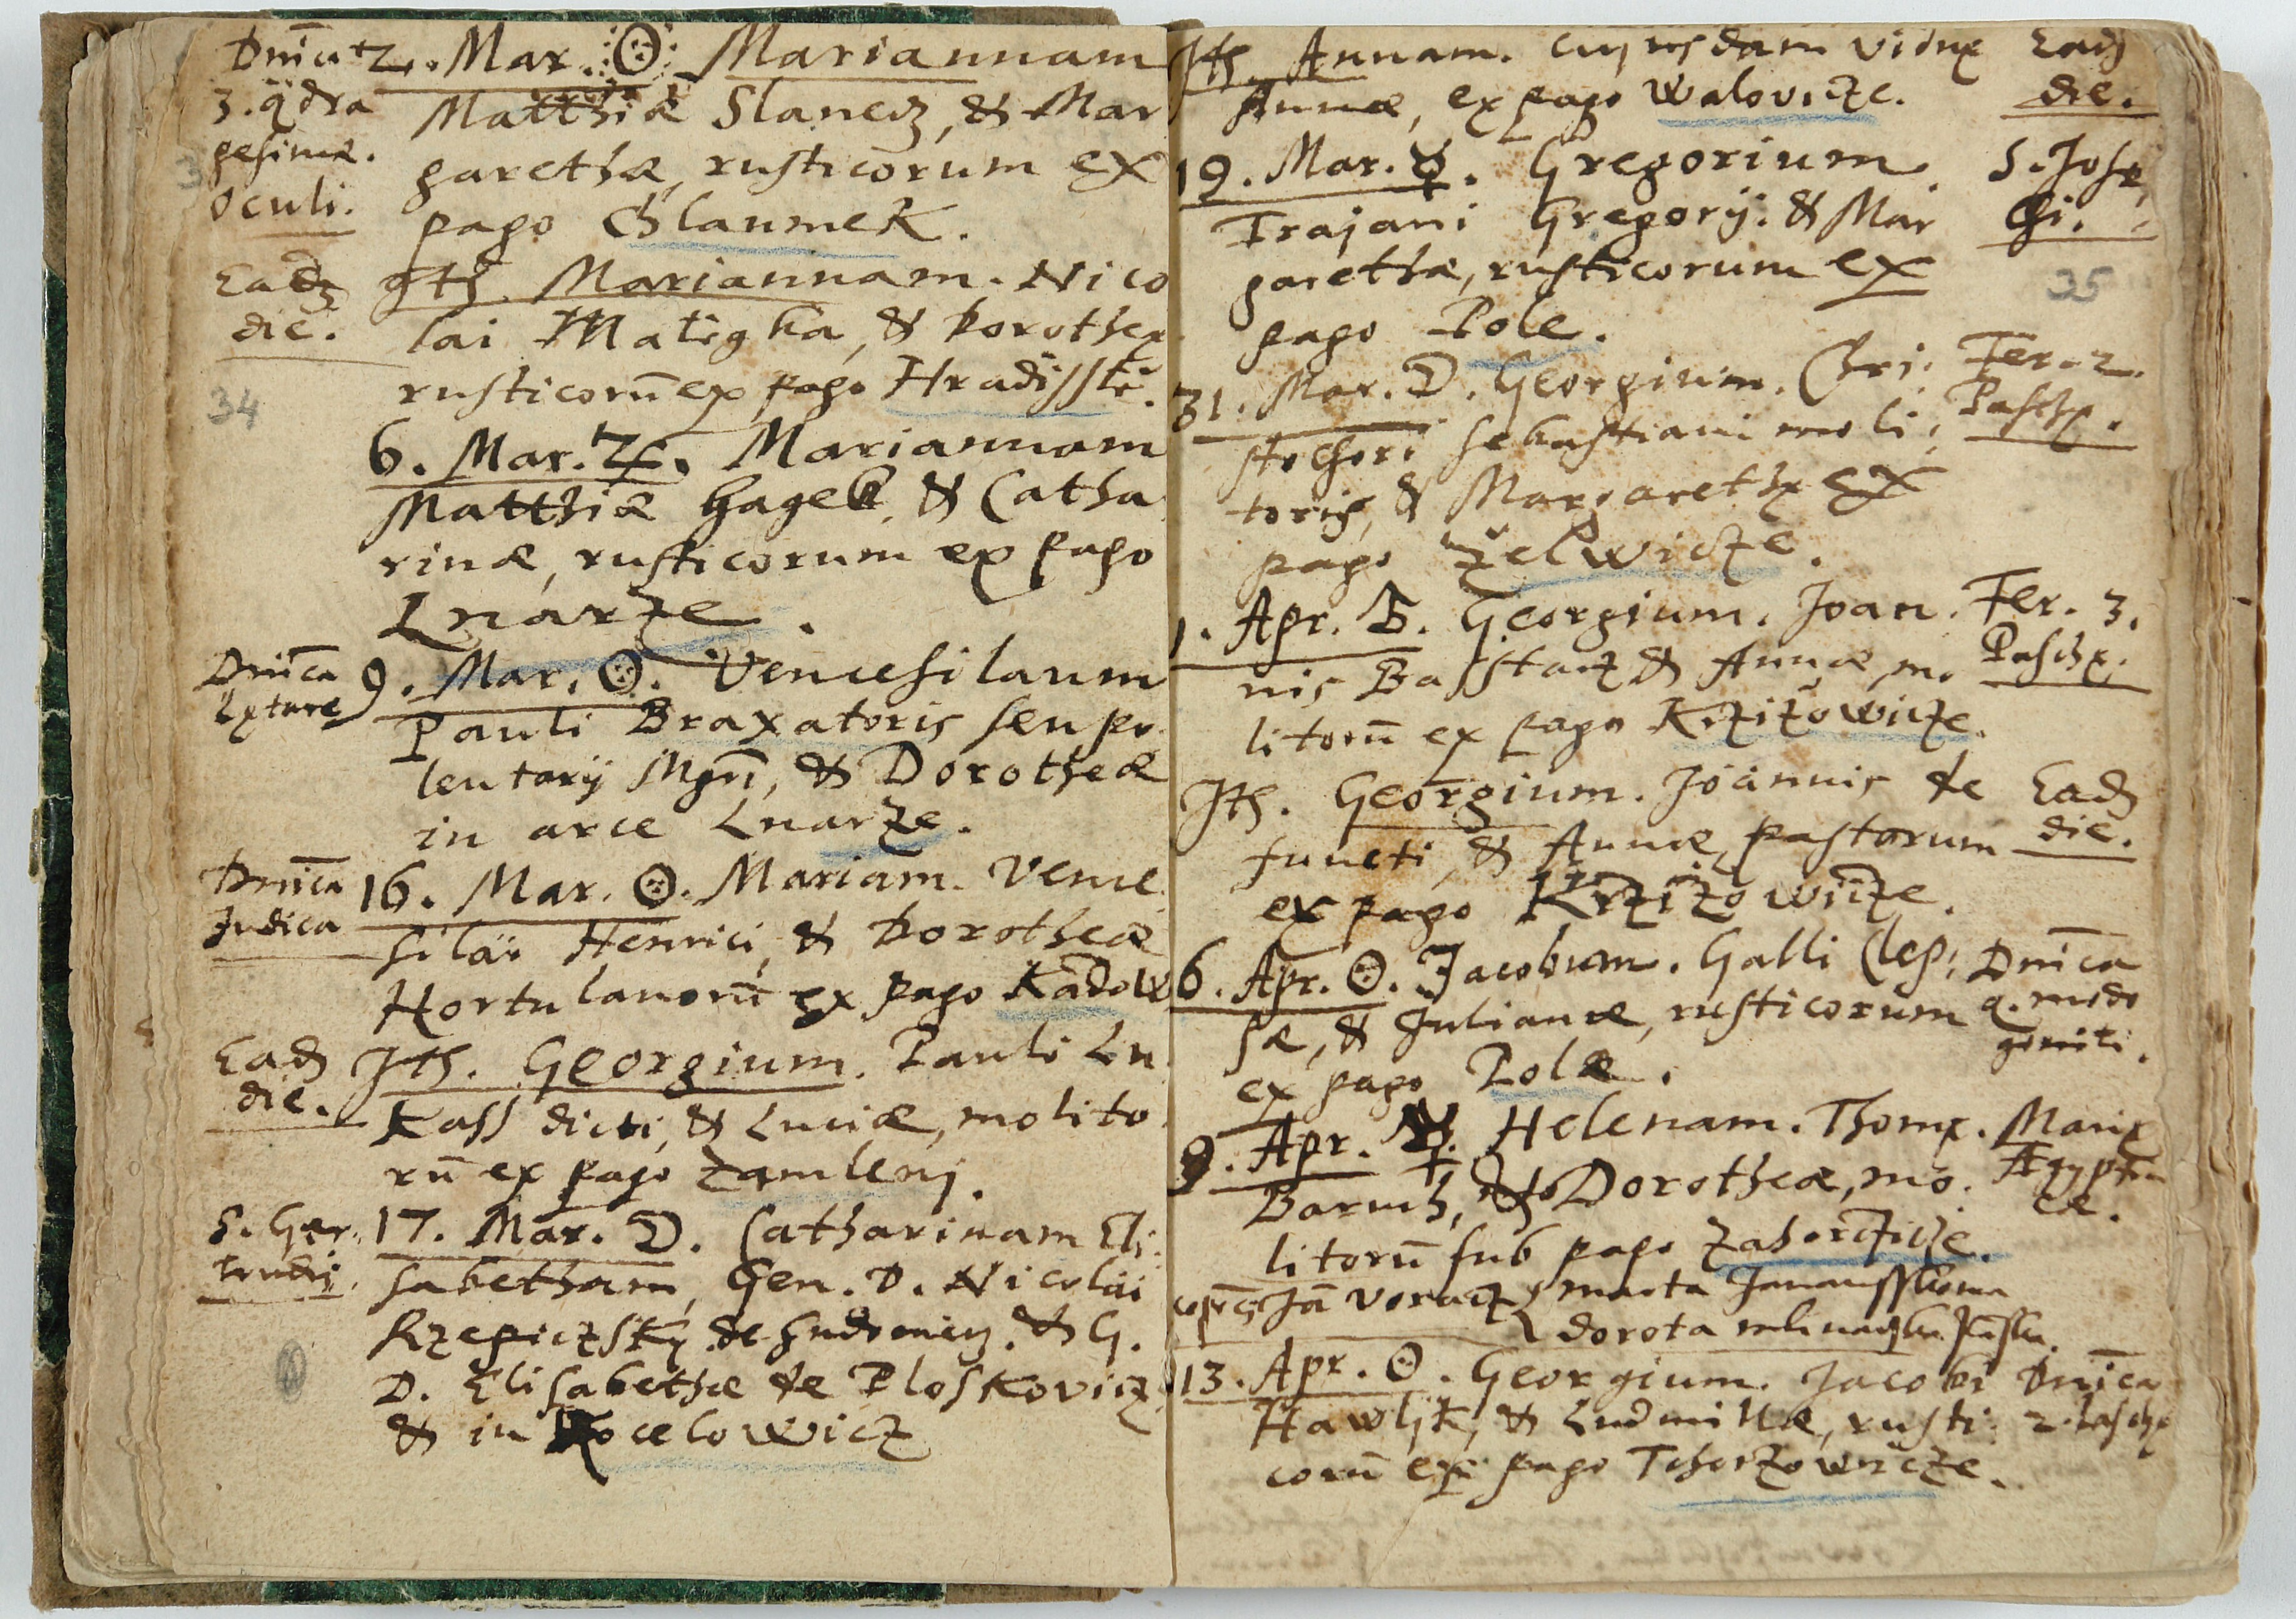 Dnica 2. Mar. ☉. Mariannam
3. qdra
gesimæ.
Oculi.
Matthiæ Slanecz, & Mar
garethæ, rusticorum ex
pago Hlaumek.
Eadz
die.
Ith. Mariannam. Nico
lai Matigka, & Dorotheæ
rusticorū ex pago Hradisstie.
34
6. Mar. ♃. Mariannam
Matthiæ Hagek, & Catha
rinæ, rusticorum ex pago
Lnarze.
Dnica
Lætare
9. Mar. ☉. Vencesilaum
Pauli Braxatoris seu po
lentarij Mgri, & Dorotheæ
in arce Lnarze.
Dnica
Judica
16. Mar. ☉. Mariam. Vence
silai Henrici, & Dorotheæ
Hortulanorū ex pago Kadow
Eadz
die.
Ith. Georgium. Pauli Lu
kass dicti, & Luciæ, molito
rū ex pago Zamlenj.
S. Ger
trudis
17. Mar. ☽. Catharinam Eli
sabetham, Gen. D. Nicolai
Rzepiczský de Sudomicz. & G.
D. Elisabethæ de Ploskovicz
& in Kocelowicz
Ith. Annam. cujusdam viduæ
Annæ, ex pago Walovicze.
Eadz
die.
19. Mar. ☿. Gregorium.
Trajani Gregorij. & Mar
garethæ, rusticorum ex
pago Pole.
S. Jose
phi.
35
31. Mar. ☽. Georgium. Chri
stophori Sebastiani moli
toris, & Margarethæ ex
pago Želwicze.
Fer. 2.
Paschæ.
1. Apr. ♂. Georgium. Joan
nis Basstarz & Annæ, mo
litorū ex pago Krzižowicze.
Fer. 3.
Paschæ.
Ith. Georgium. Joannis de
functi, & Annæ, pastorum
ex pago Krzižowicze.
Eadz
die.
6. Apr. ☉. Jacobum. Galli Clep
sæ, & Julianæ, rusticorum
ex pago Polæ.
Dnica
q. modo
geniti.
9. Apr. ☿. Helenam. Thomæ.
Baruch, & Dorotheæ, mo
litorū sub pago Zahorczicze.
Mariæ
Ægyptia
cæ.
Jā Voracz marta
dorota
13. Apr. ☉. Georgium. Jacobi
Hawljk, & Ludmillæ, rusti
corū ex pago Tchorzowicze.
Dnica
2. Paschæ